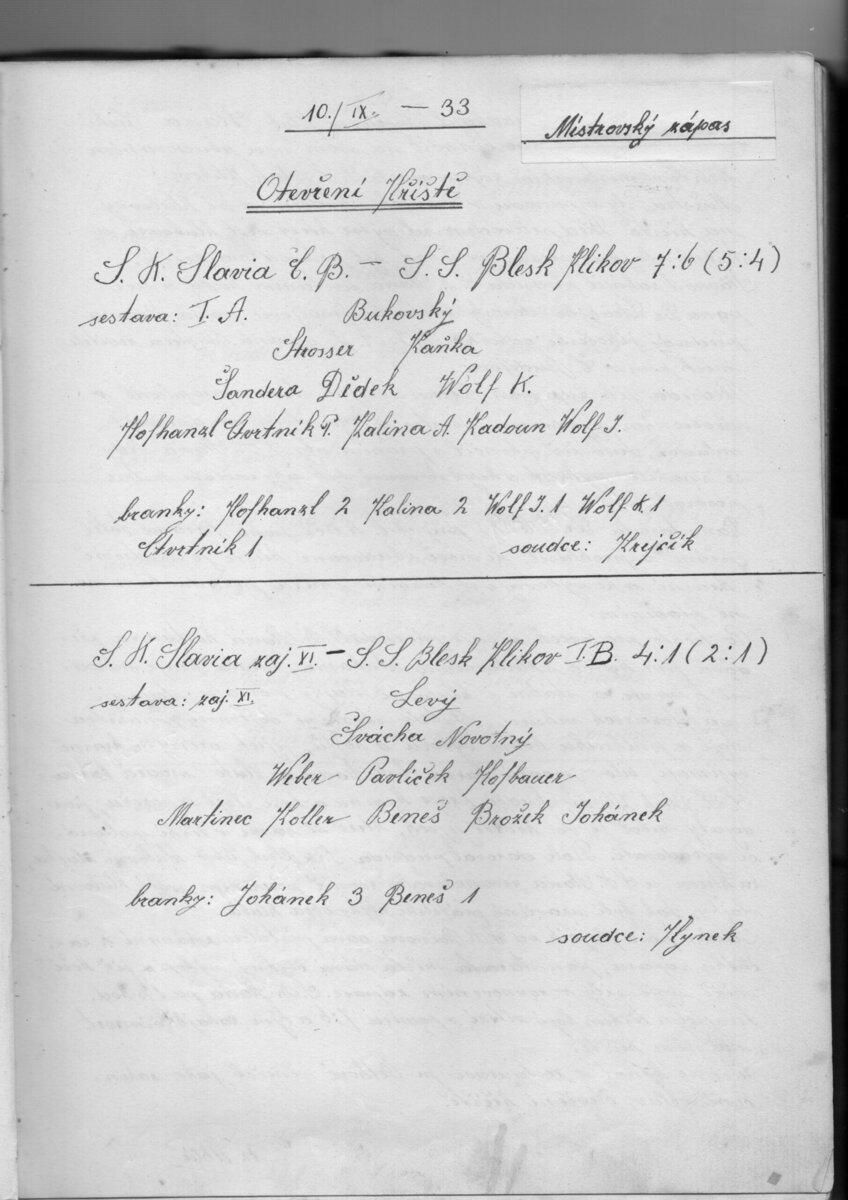 10./IX. — 33
Mistrovský zápas
Otevření Hřiště
S. K. Slavia Č. B. — S. S. Blesk Klikov 7:6 (5:4)
sestava: I. A. Bukovský
Strosser Kaňka
Šandera Dědek Wolf K.
Hofhanzl Čtvrtník P. Kalina A. Kadoun Wolf J.
branky: Hofhanzl 2 Kalina 2 Wolf J. 1 Wolf K 1
Čtvrtník 1 soudce: Krejčík
S. K. Slavia zaj. XI. — S. S. Blesk Klikov I.B. 4:1 (2:1)
sestava: zaj. XI. Levý
Švácha Novotný
Weber Pavlíček Hofbauer
Martinec Koller Beneš Brožek Johánek
branky: Johánek 3 Beneš 1
soudce: Hynek